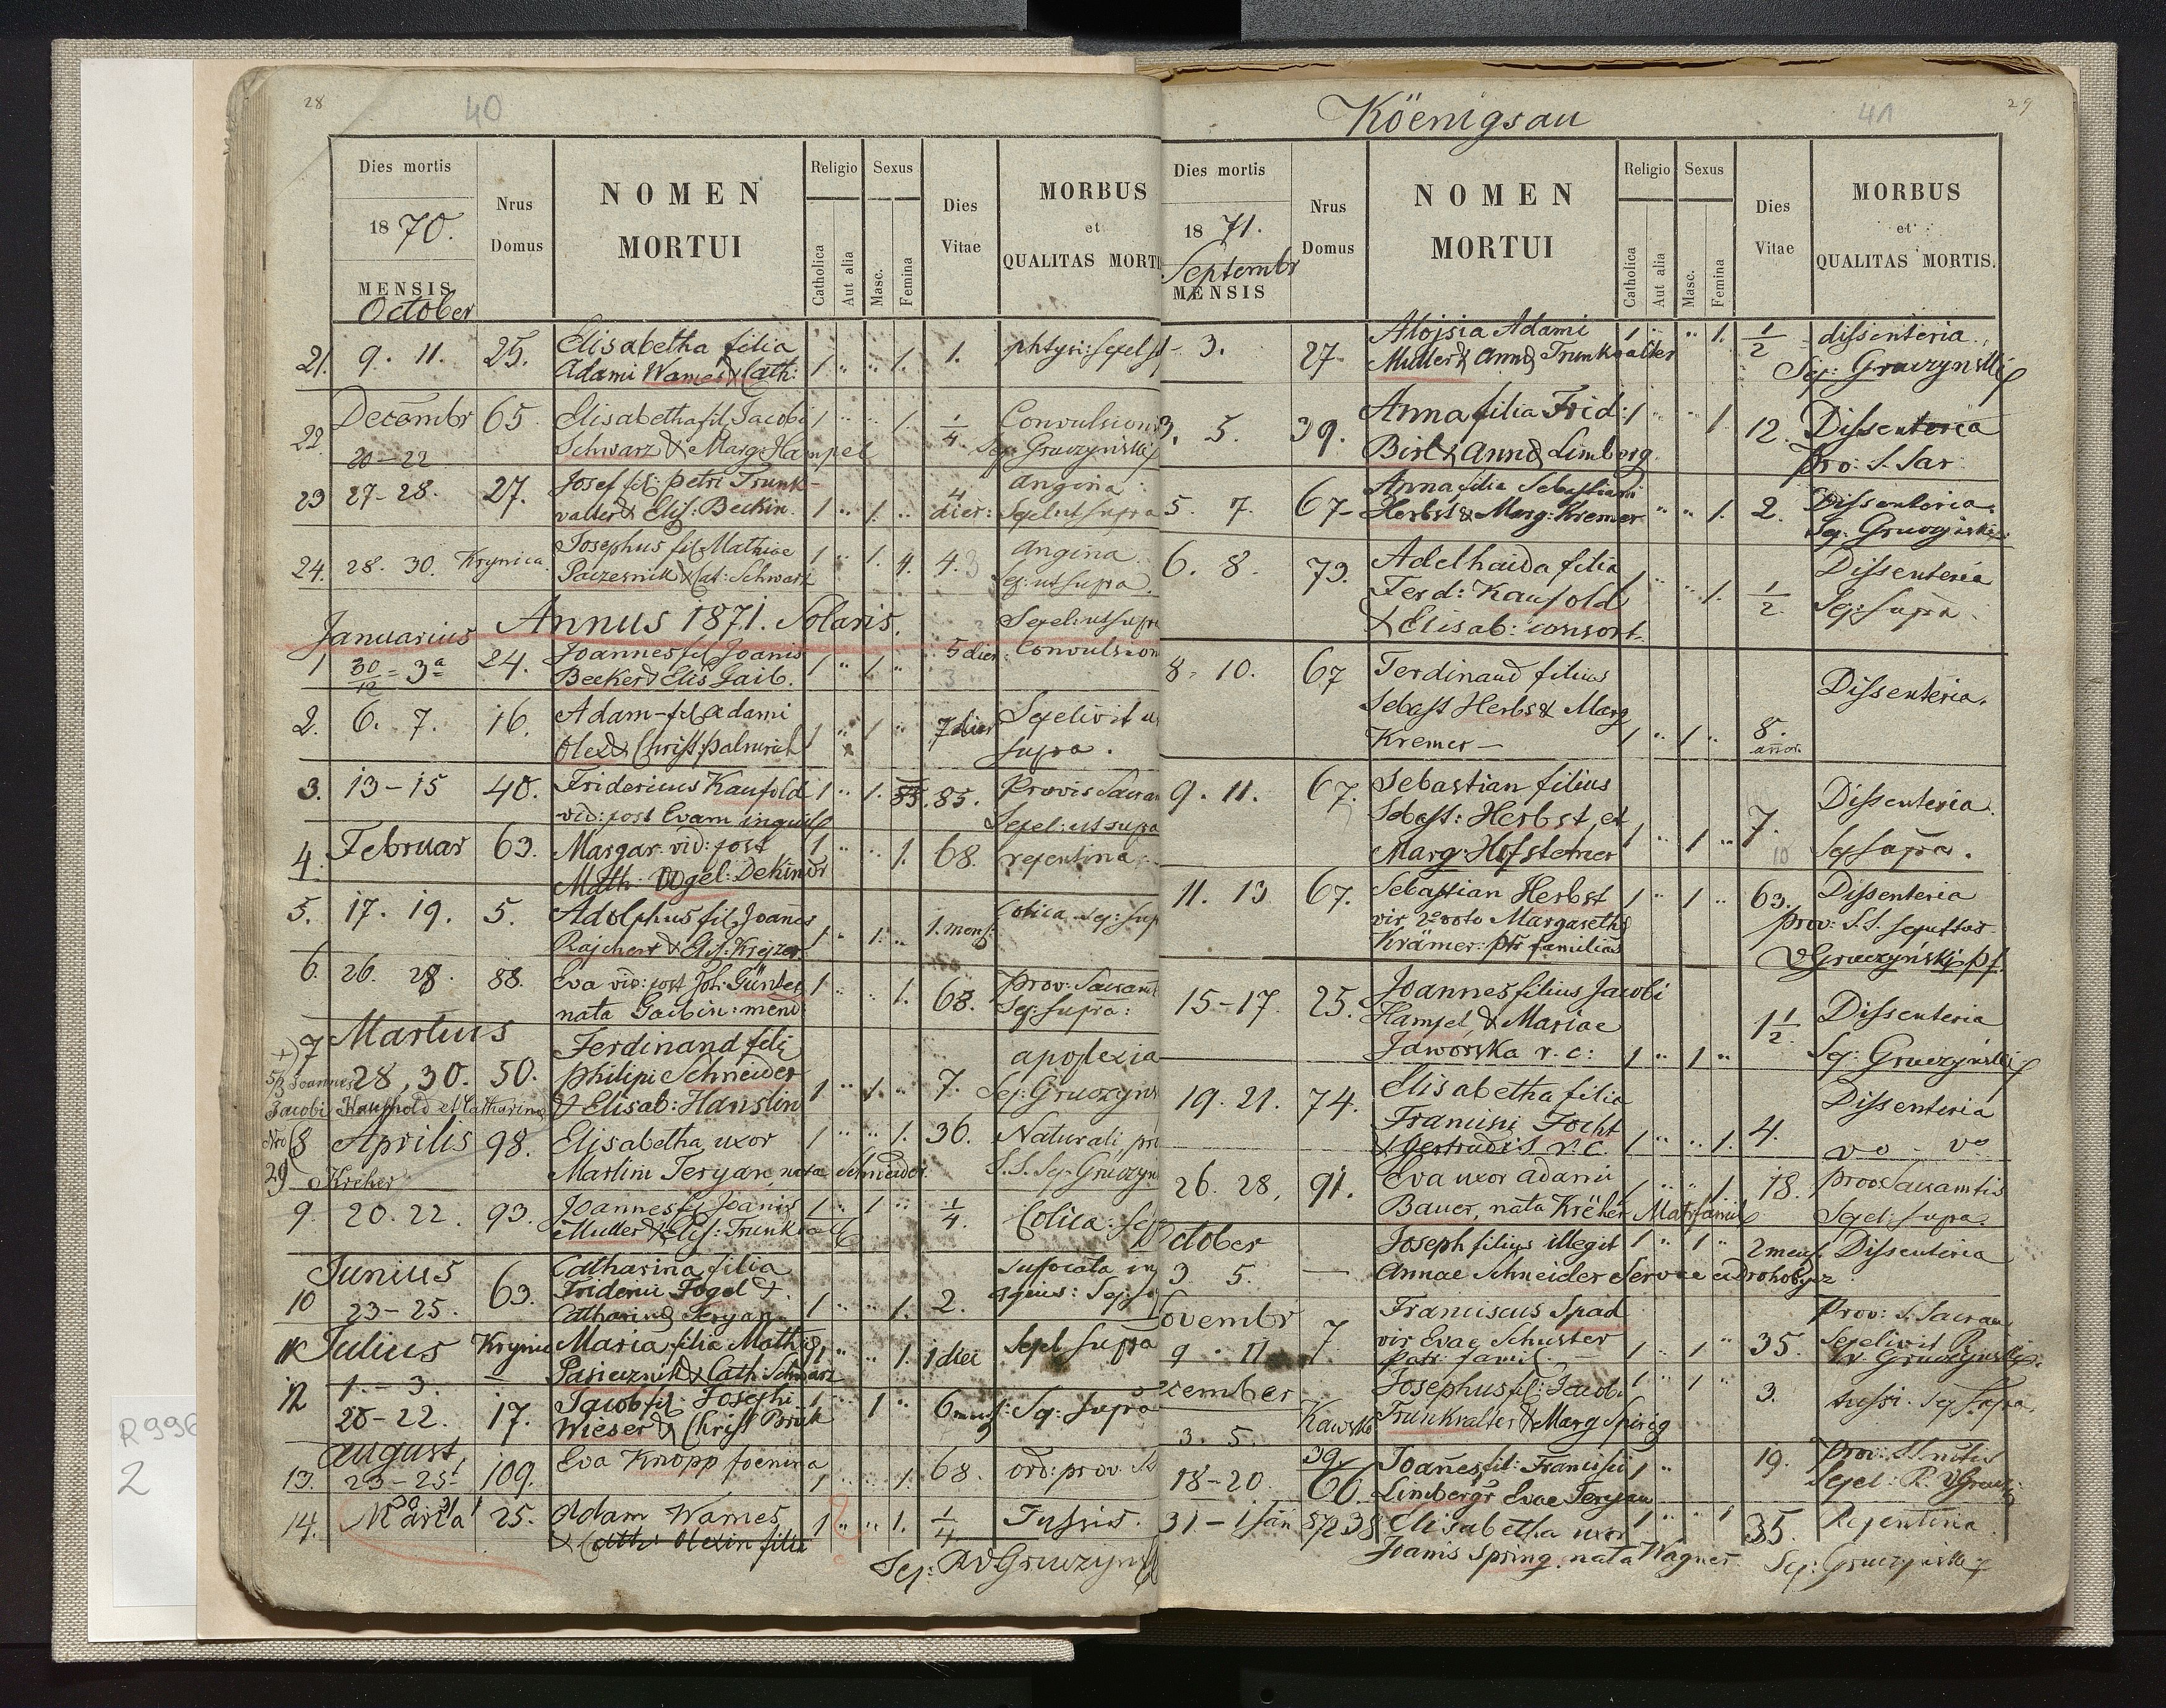 28
40
Dies mortis
1870.
MENSIS
October
Nrus
Domus
NOMEN
MORTUI
Religio
Catholica
Aut alia
Sexus
Masc.
Femina
Dies
Vitae
MORBUS
et
QUALITAS MORTI
21. 9. 11. 25. Elisabetha filia 1 " " 1. 1.
Adami Wames & Cath:
Decembr 65. Elisabetha fil. Jacobi 1 " " 1. 1/4 Convulsion
22. 20-22 Schwarz & Marg: Hampel Sep: Gruczyński
23 27-28. 27. Josef fil: petri Trunk- 1 " 1. " 4 dier: angina
valter & Elis: Beckin Sepel: ut supra
24. 28. 30. Krynica Josephus fil Mathiae 1 " 1. 4. angina
Paczesnik & Cat: Schwarz Sep: ut supra.
Januarius Annus 1871. Solaris. Sepel: ut supra
1 30/12 = 3a 24. Joannes fil Joanis 1 " 1 " 5 dier: Convulsion
Becker & Elis Gaib.
2. 6. 7. 16. Adam fil adami 1 " 1 " 7 dier Sepelivit ut
Olex & Christ: Palmrich supra.
3. 13-15 40. Fridericus Kaufold 1 " 1. 85. Provis Sacram
vid: post Evam inquil Sepel: ut supra
4. Februar 63. Margar: vid: post 1 " " 1. 68. repentina
Math: Vogel: Dekinder
5. 17. 19. 5. Adolphus fil, Joanes 1 " 1. " 1. mens. Colica Sep: sup
Rajchert & Elis: Krejzer
6. 26. 28. 88. Eva vid: post Joh: Günter 1 " " 1. 68. Prov: Sacramt
nata Gaibin: mend Sep: supra:
Martius
7 28, 30. 50. Ferdinand fili 1 " 1. " 7. apoplexia
philipi Schneider Sep: Gruczyns
& Elisab: Hanslin
Joannes
Jacobi Kauffold et Catharina
Nro 29 Kreher
8 Aprilis 98. Elisabetha uxor 1 " " 1. 36. Naturali, pr
Martini Teryan, nata Schneider. S.S. Sep: Gruczyn
9. 20. 22. 93. Joannes fil Joanis 1 " 1 " 1/4. Colica: Sep
Muller & Elis: Trunkwal
Junius 63. Catharina filia
10 23-25. Friderici Fogel & 1 " " 1. 2. Sufocata in
Catharina Teryan
11 Julius Krynic Maria filia Mathi 1 " " 1. 1 diei Sepel supra
1.-3. Pasiecznik & Cath: Schwarz
12 20-22. 17. Jacob fil: Josephi 1 " 1 " 6 mens: Sep: supra
Wieser & Christ Brük
August
13. 23-25. 109. Eva Knopp foenina 1 " " 1. 68. ord: prov. S
14. Maria 25. Adam Wames 1 " " 1. 1/4 Tussis.
& Cath: Olexin filia
Sep: R V Gruczyns
R996
2
Köenigsau
41
29
Dies mortis
1871.
Septembr
MENSIS
Nrus
Domus
NOMEN
MORTUI
Religio
Catholica
Aut alia
Sexus
Masc.
Femina
Dies
Vitae
MORBUS
et
QUALITAS MORTIS.
- 3. 27. Alojsia Adami 1 " " 1. 1/2 dissenteria.
Muller & Anna Trunkwalter Sep: Gruczyński
3. 5. 39. Anna filia Frid: 1 " " 1 12. Dissenteria
Birl & Anna Limberg. pro: S. Sar:
5. 7. 67. Anna filia Sebastiani " " 1. 2. Dissenteria.
Herbst & Marg: Kremer Sep: Gruczyński
6. 8. 79. Adelhaida filia Dissenteria
Ferd: Kaufold 1 " " 1. 1/2. Sep: supra.
& Elisab: consort.
8. 10. 67 Ferdinand filius Dissenteria.
Sebast Herbst & Marg
Kremer- 1 " 1 " 8. annor.
9. 11. 67. Sebastian filius Dissenteria.
Sebast: Herbst, et
Marg: Hofstetner 1 " 1 " 7. Sep supra.
11. 13 67. Sebastian Herbst 1 " 1 " 63. Dissenteria
vir 2o voto Margaretha prov: S.S. sepultus
Krämer: ptr familias V Gruczyński pf.
15-17. 25. Joannes filius Jacobi
Hampel & Mariae 1 1/2. Dissenteria
Jaworska r. c: 1 " 1 " Sep: Gruczyński
19. 21. 74. Elisabetha filia Dissenteria
Francisci Focht 4.
& Gertrudis r. c. 1 " " 1. vo - vo
26. 28, 91. Eva uxor adami 1 " " 1 18. prov Sacramtis
Bauer, nata Kreher Matrfamil Sepel: supra.
October Joseph filius illegit 1 " 1 " 2 mens. Dissenteria
3 5. - Annae Schneider Servae e Drohobycz
Novembr 7 Franciscus Spad Prov: S. Sacram
9 - 11 vir Evae Schuster 1 " 1 " 35. Sepelivit R
patr: famil. V. Gruczyński
Josephus fil: Jacobi 1 " 1 " 3. tussi. sep supra.
3. 5. Kawsko Trunkvalter & Marg Spirig
18-20. 39. 66. Joanes, fil: Francisci 1 " 19. Prov:
Limberg & Evae Teryan Sepel: R. V Grucz
31 - 1 Jan 38 Elisabetha uxor 1 " " 1 35. Repentina.
Joanis Spring. nata Wagner. Sep: Gruczyński